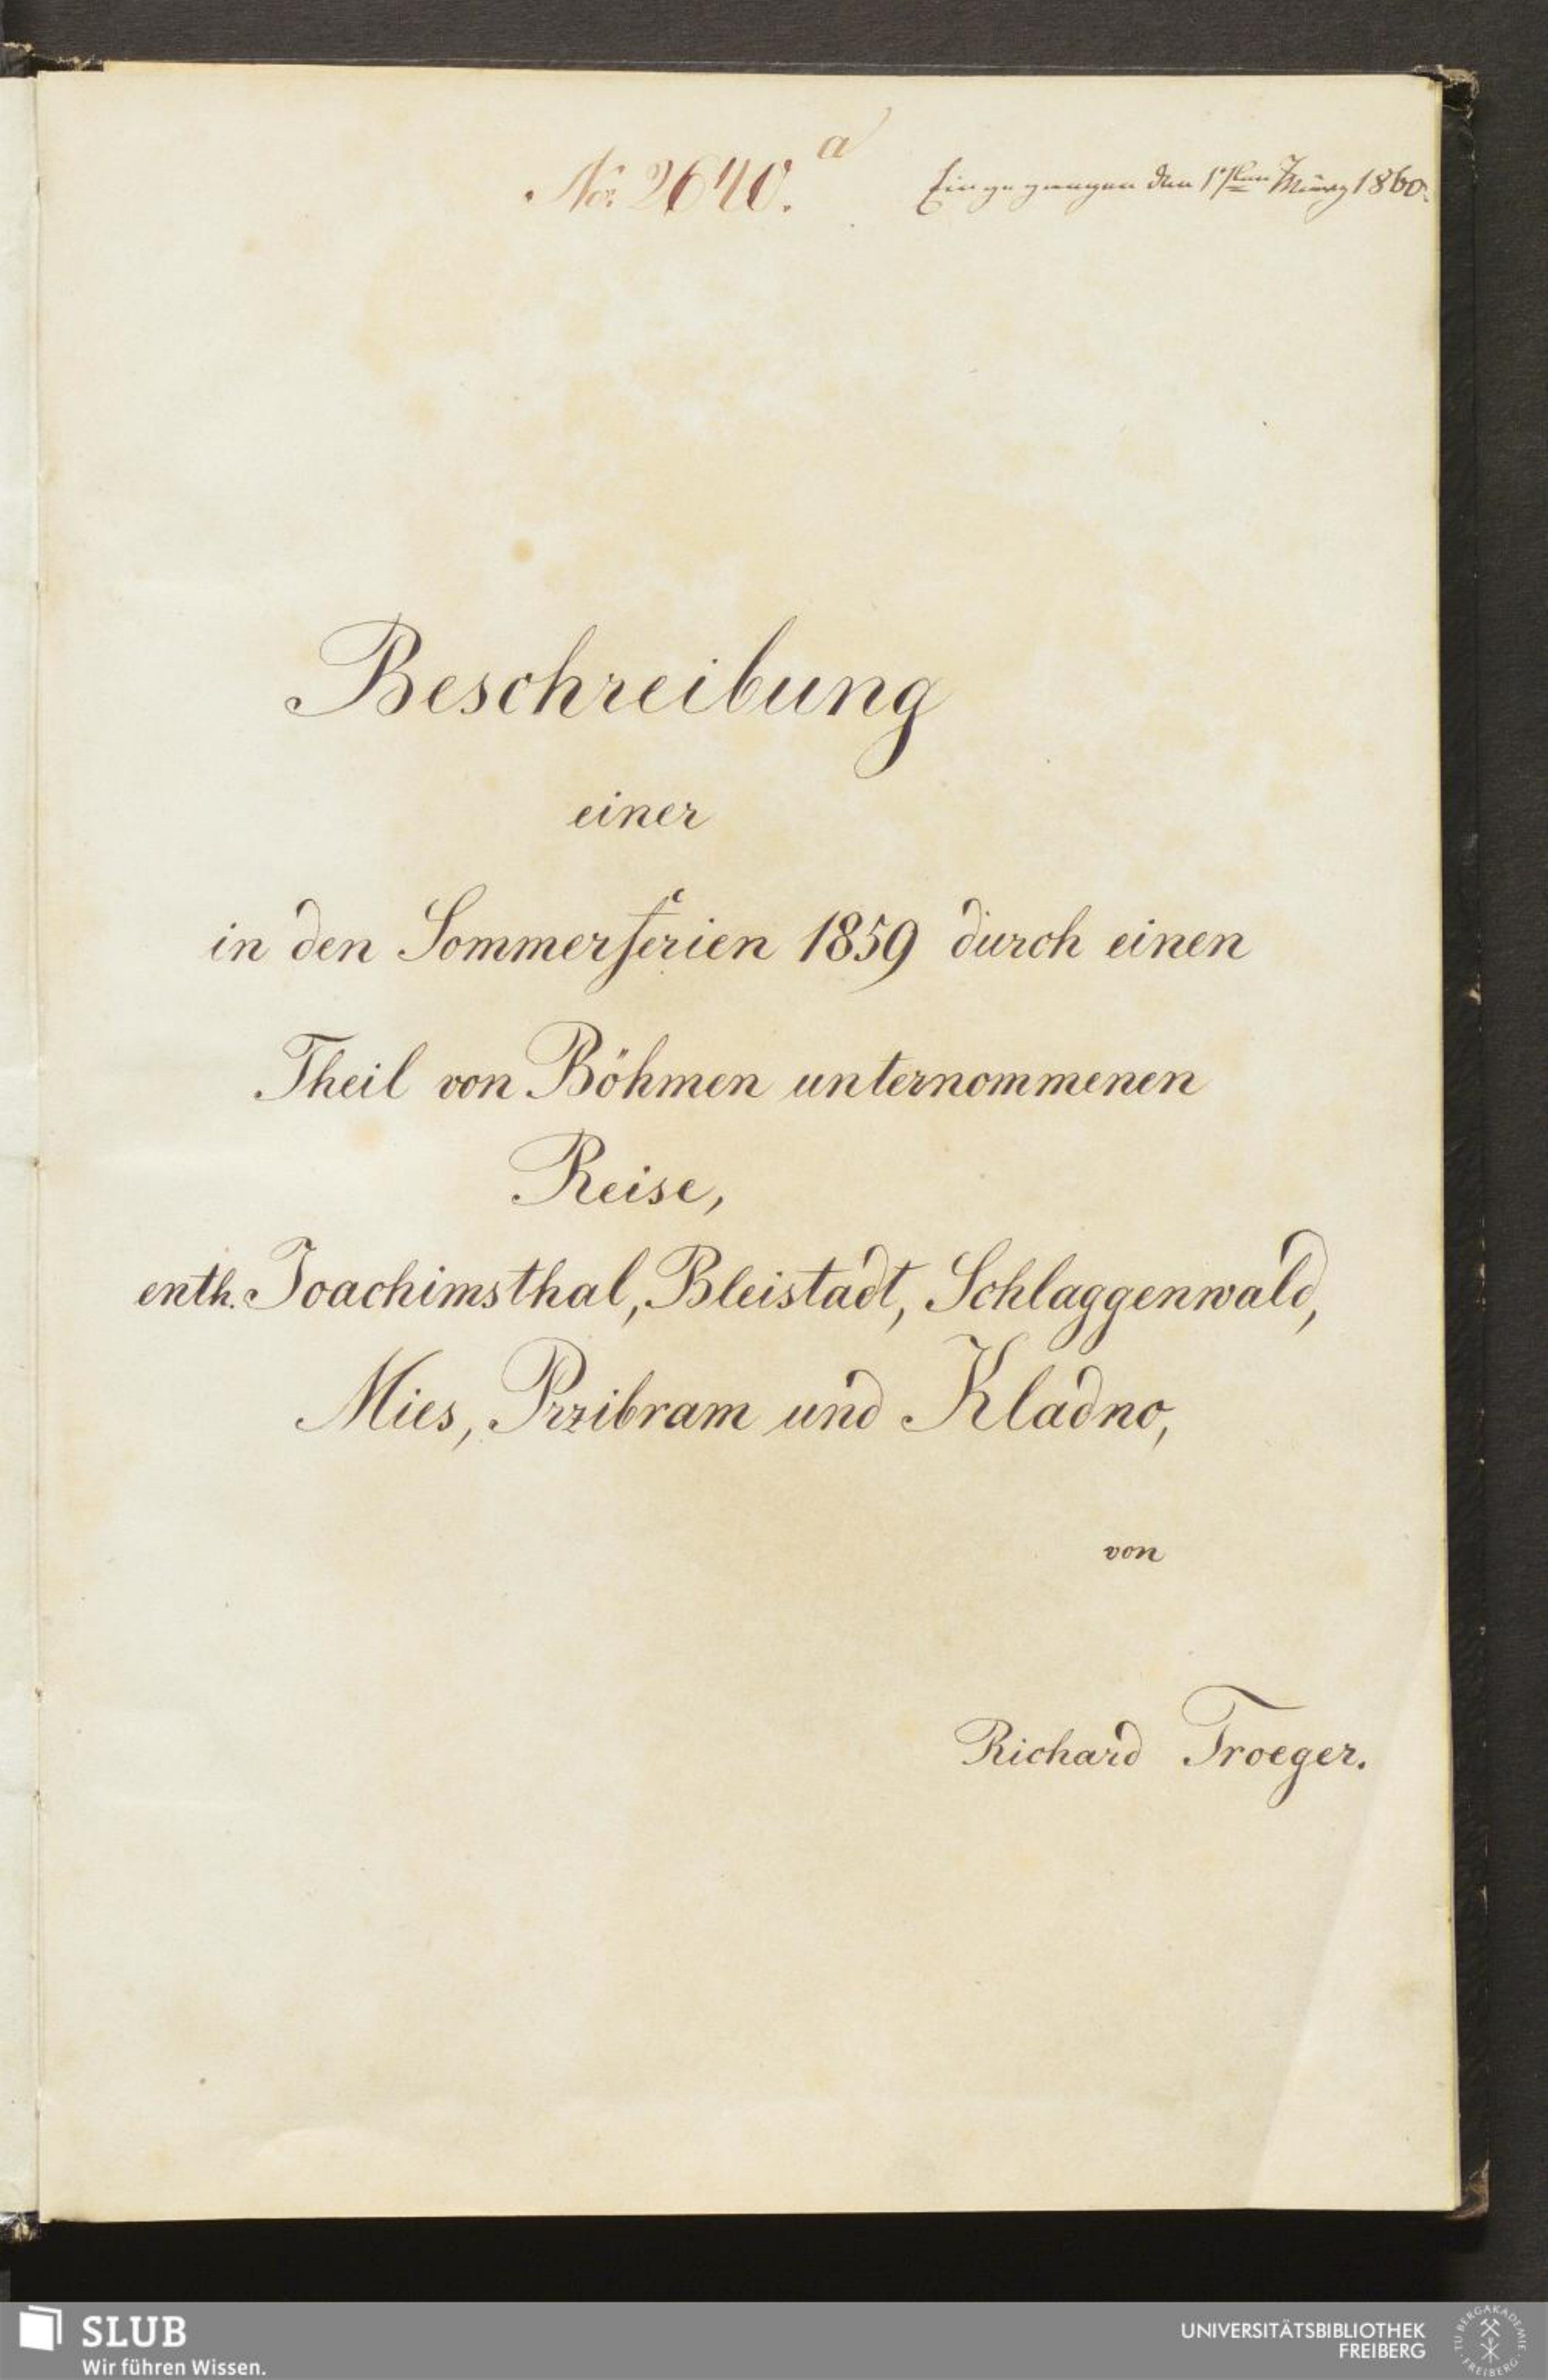 No: 2640. a
Eingegangen den 1sten März 1860.
Beschreibung
einer
in den Sommerferien 1859 durch einen
Theil von Böhmen unternommenen
Reise,
enth. Joachimsthal, Bleistadt, Schlaggenwald,
Mies, Przibram und Kladno,
von
Richard Troeger.
SLUB
Wir führen Wissen.
UNIVERSITÄTSBIBLIOTHEK
FREIBERG
TU BERGAKADEMIE FREIBERG